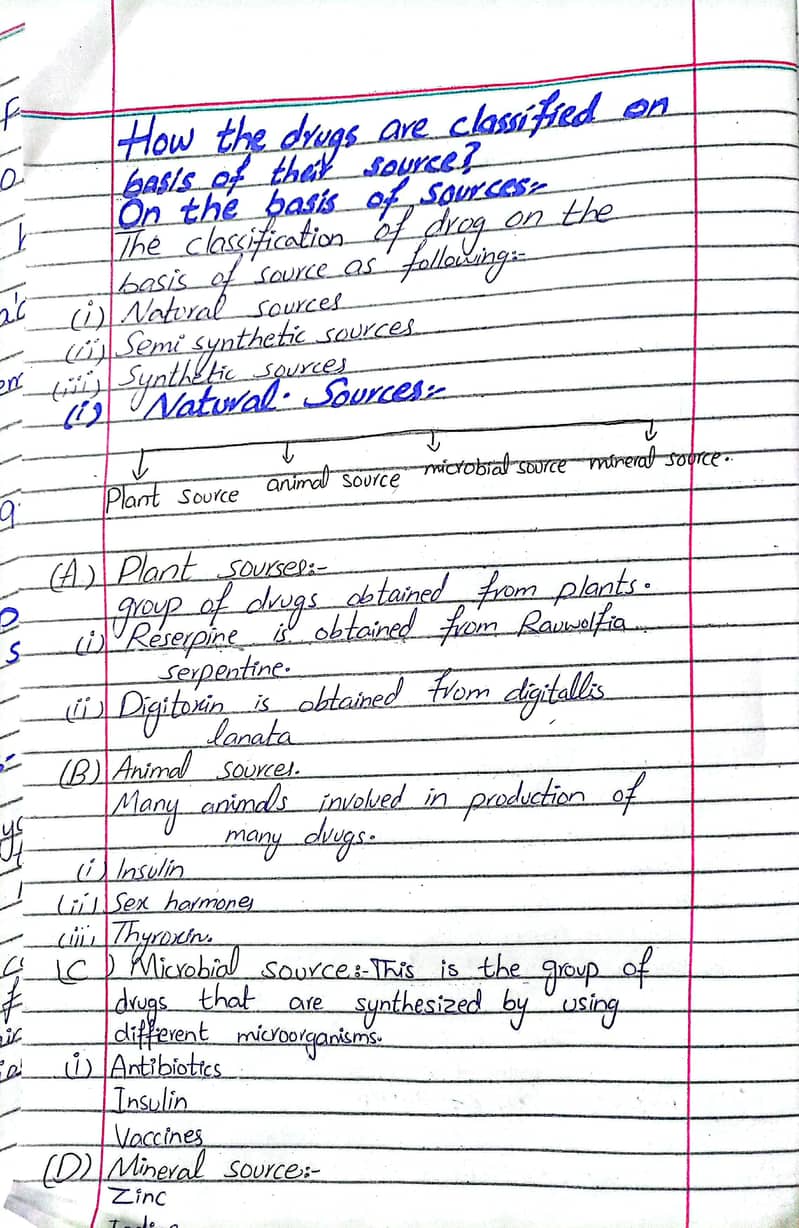 How the drugs are classified on
basis of their source?
On the basis of sources:-
The classification of drog on the
basis of source as following:-
(i) Natural sources
(ii) Semi synthetic sources
(iii) Synthetic sources
(i) Natural. Sources:-
Plant source animal source microbial source mineral source.
(A) Plant sourses:-
group of drugs obtained from plants.
(i) Reserpine is obtained from Rauwolfia
serpentine.
(ii) Digitoxin is obtained from digitallis
lanata
(B) Animal sources.
Many animals involved in production of
many drugs.
(i) Insulin
(ii) Sex harmones
(iii) Thyroxin.
(C) Microbial source:- This is the group of
drugs that are synthesized by using
different microorganisms.
(i) Antibiotics
Insulin
Vaccines
(D) Mineral source:-
Zinc